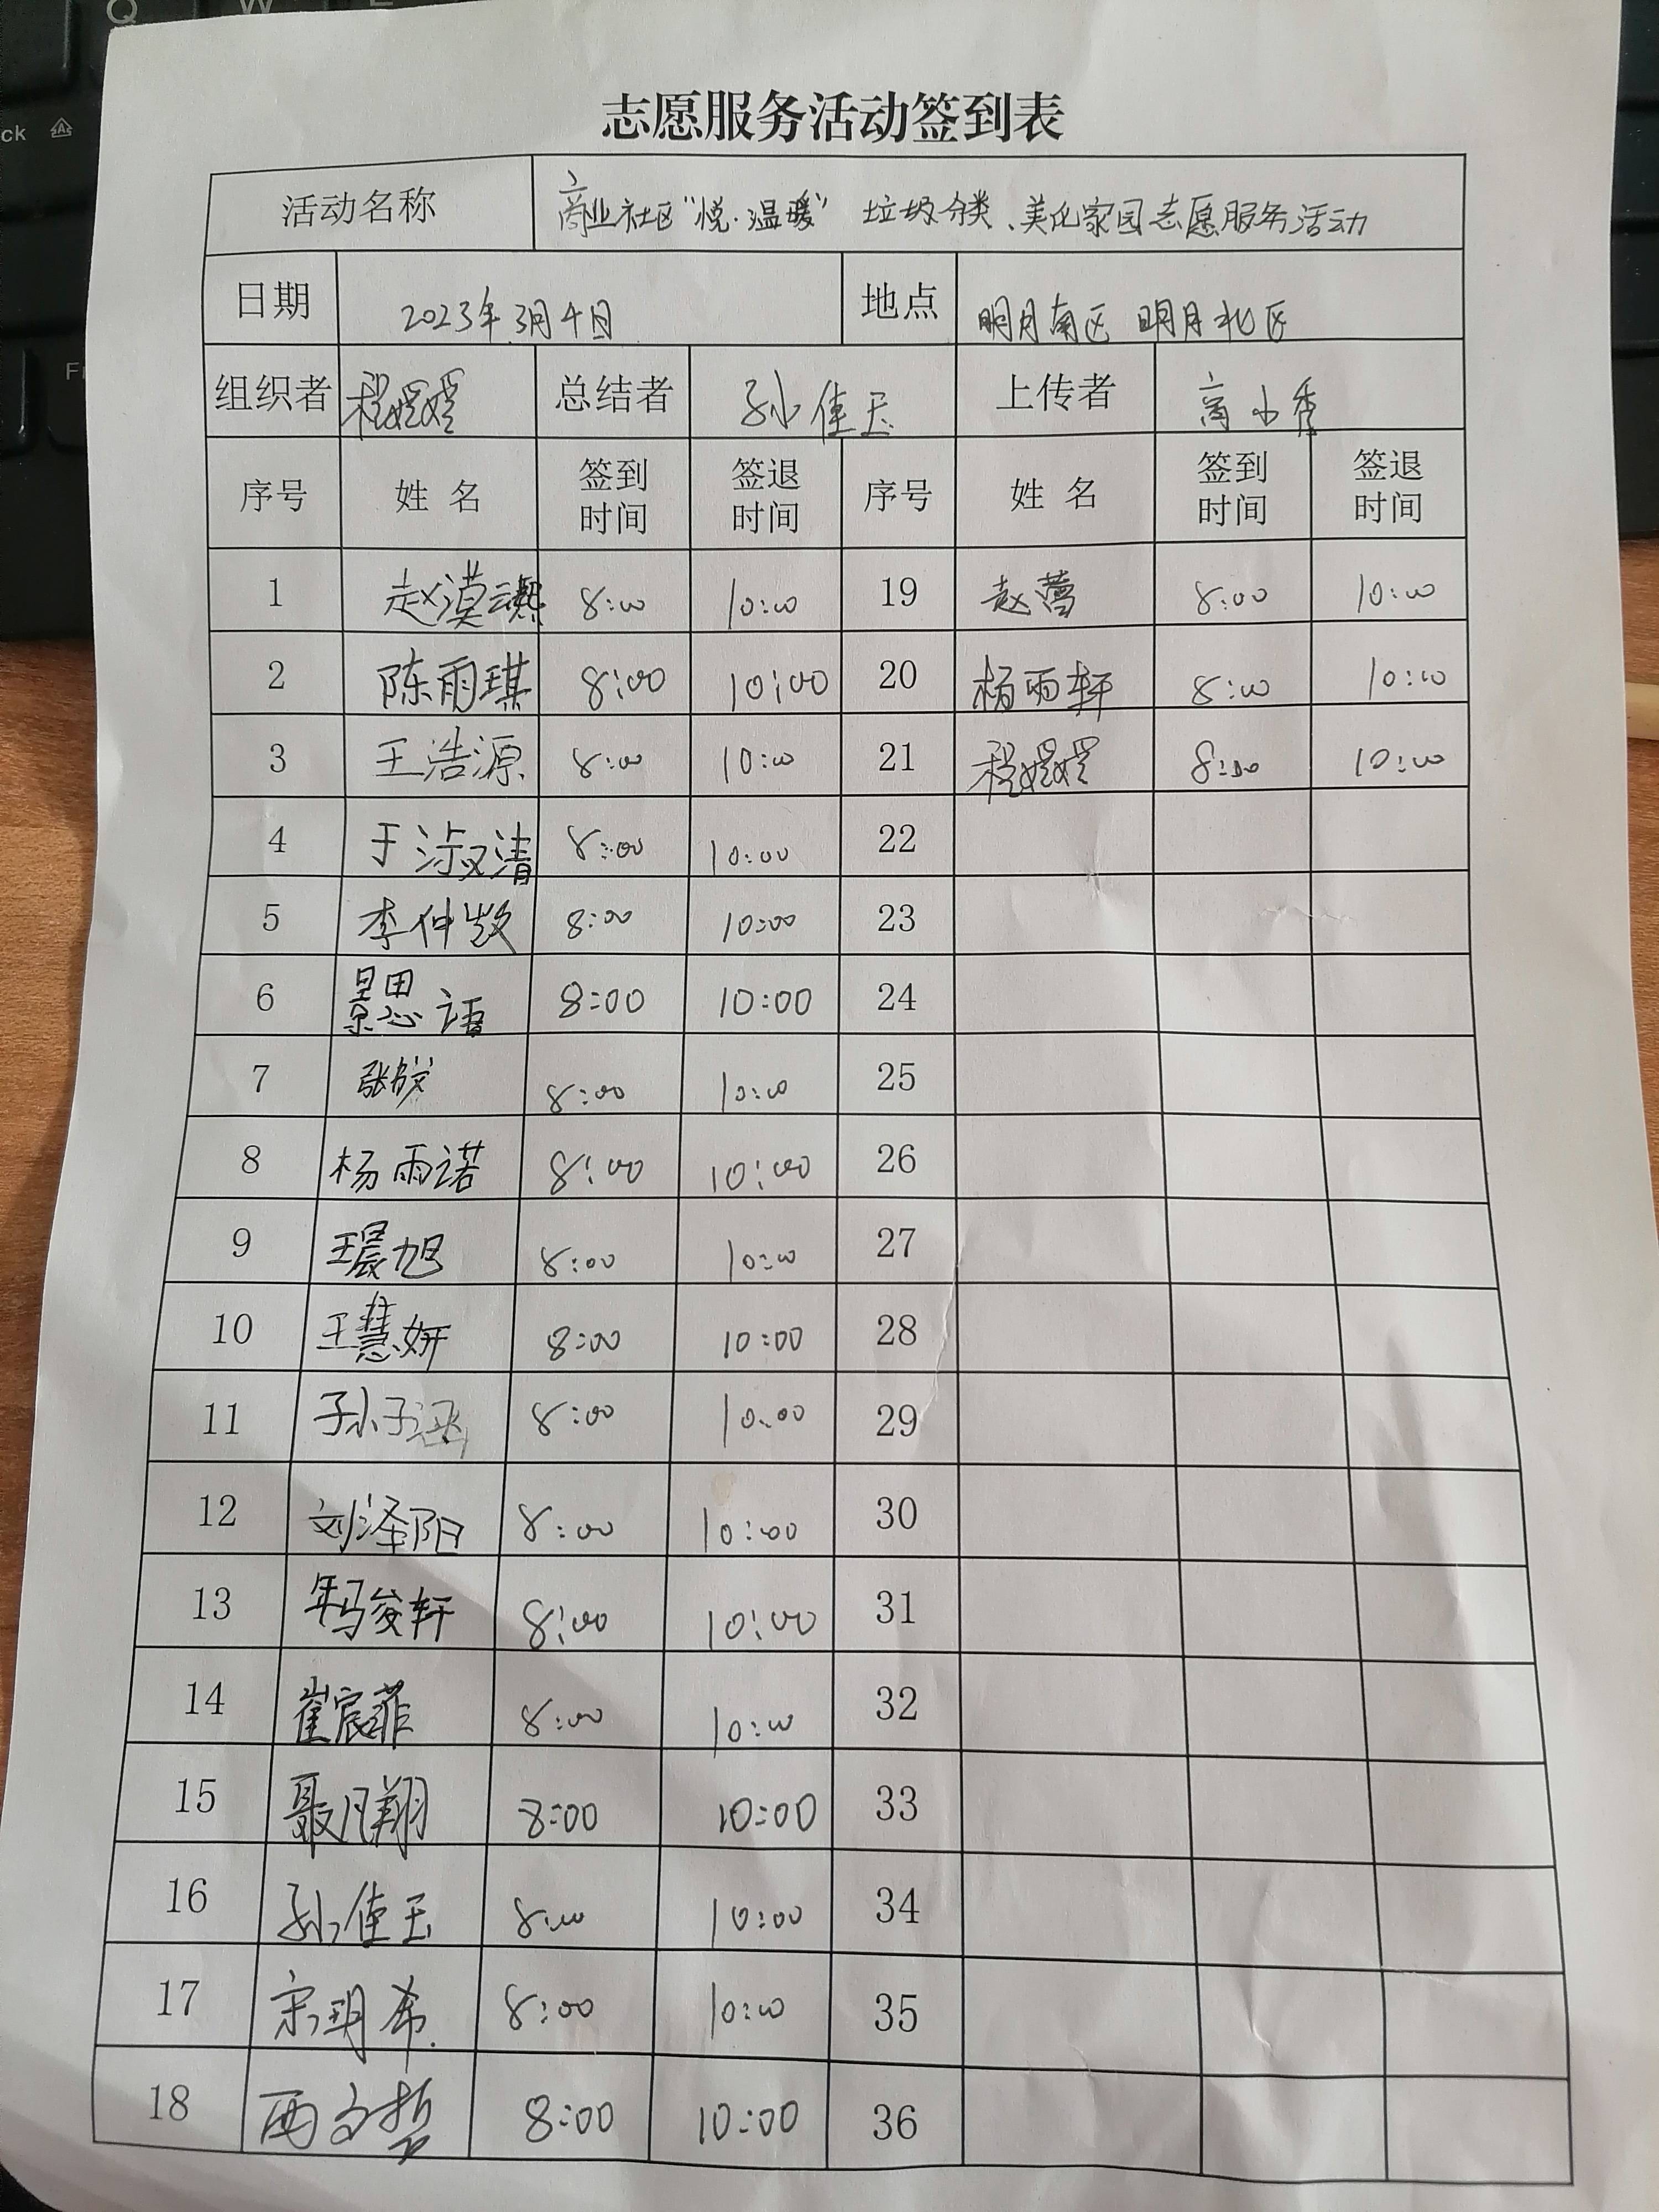 Q W E
ck
Fn
志愿服务活动签到表
活动名称 商业社区"悦·温暖" 垃圾分类、美化家园志愿服务活动
日期 2023年3月4日 地点 明月南区 明月北区
组织者 程嫚嫚 总结者 孙佳玉 上传者 高小秀
序号 姓名 签到时间 签退时间 序号 姓名 签到时间 签退时间
1 8:00 10:00 19 赵蕾 8:00 10:00
2 陈雨琪 8:00 10:00 20 杨雨轩 8:00 10:00
3 王浩源 8:00 10:00 21 程嫚嫚 8:00 10:00
4 于淑清 8:00 10:00 22
5 8:00 10:00 23
6 景思语 8:00 10:00 24
7 8:00 10:00 25
8 杨雨诺 8:00 10:00 26
9 王晨旭 8:00 10:00 27
10 王慧妍 8:00 10:00 28
11 孙子涵 8:00 10:00 29
12 刘泽阳 8:00 10:00 30
13 8:00 10:00 31
14 崔宸菲 8:00 10:00 32
15 8:00 10:00 33
16 孙佳玉 8:00 10:00 34
17 宋玥希 8:00 10:00 35
18 8:00 10:00 36